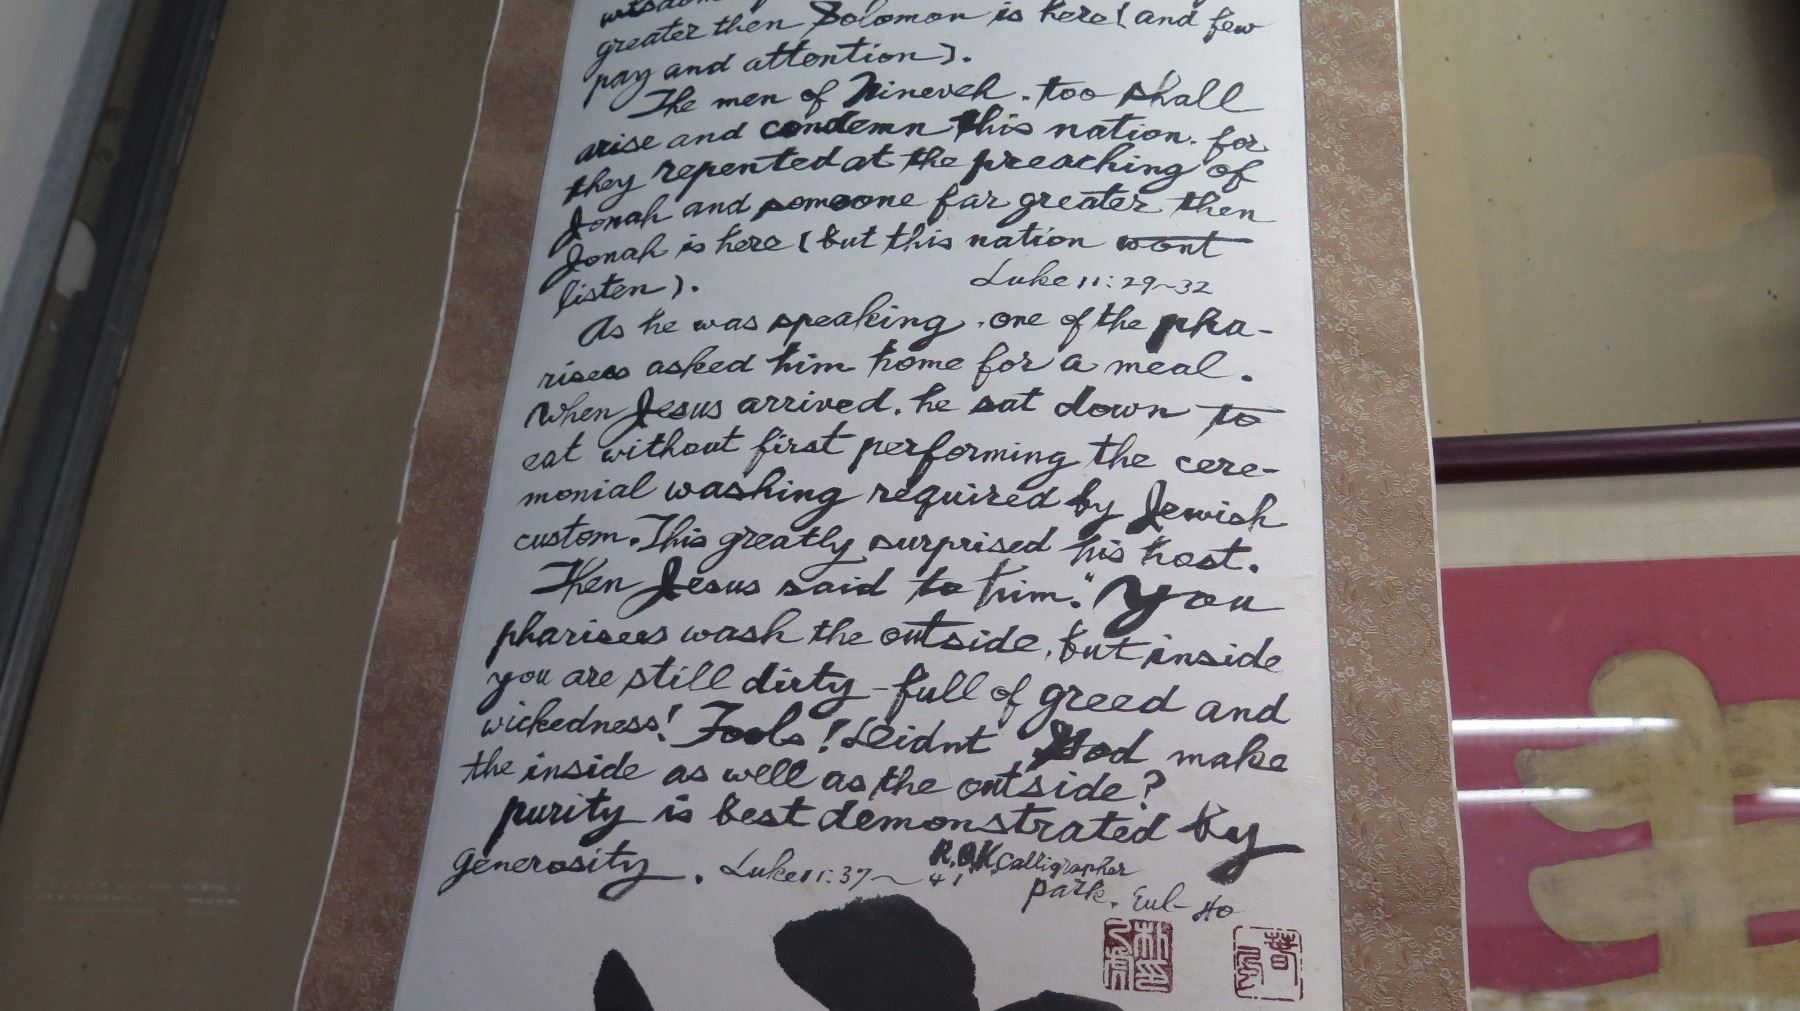 wisdom
greater then Solomon is here (and few
pay and attention).
The men of Nineveh. too shall
arise and condemn this nation. for
they repented at the preaching of
Jonah and someone far greater then
Jonah is here (but this nation wont
listen).
Luke 11:29~32
As he was speaking, one of the pha-
risees asked him home for a meal.
When Jesus arrived. he sat down to
eat without first performing the cere-
monial washing required by Jewish
custom. This greatly surprised his host.
Then Jesus said to him. "You
pharisees wash the outside, but inside
you are still dirty - full of greed and
wickedness! Fools! Didnt God make
the inside as well as the outside?
purity is best demonstrated by
generosity. Luke 11:37~41
R.O.K. Calligrapher
Park. Eul-Ho